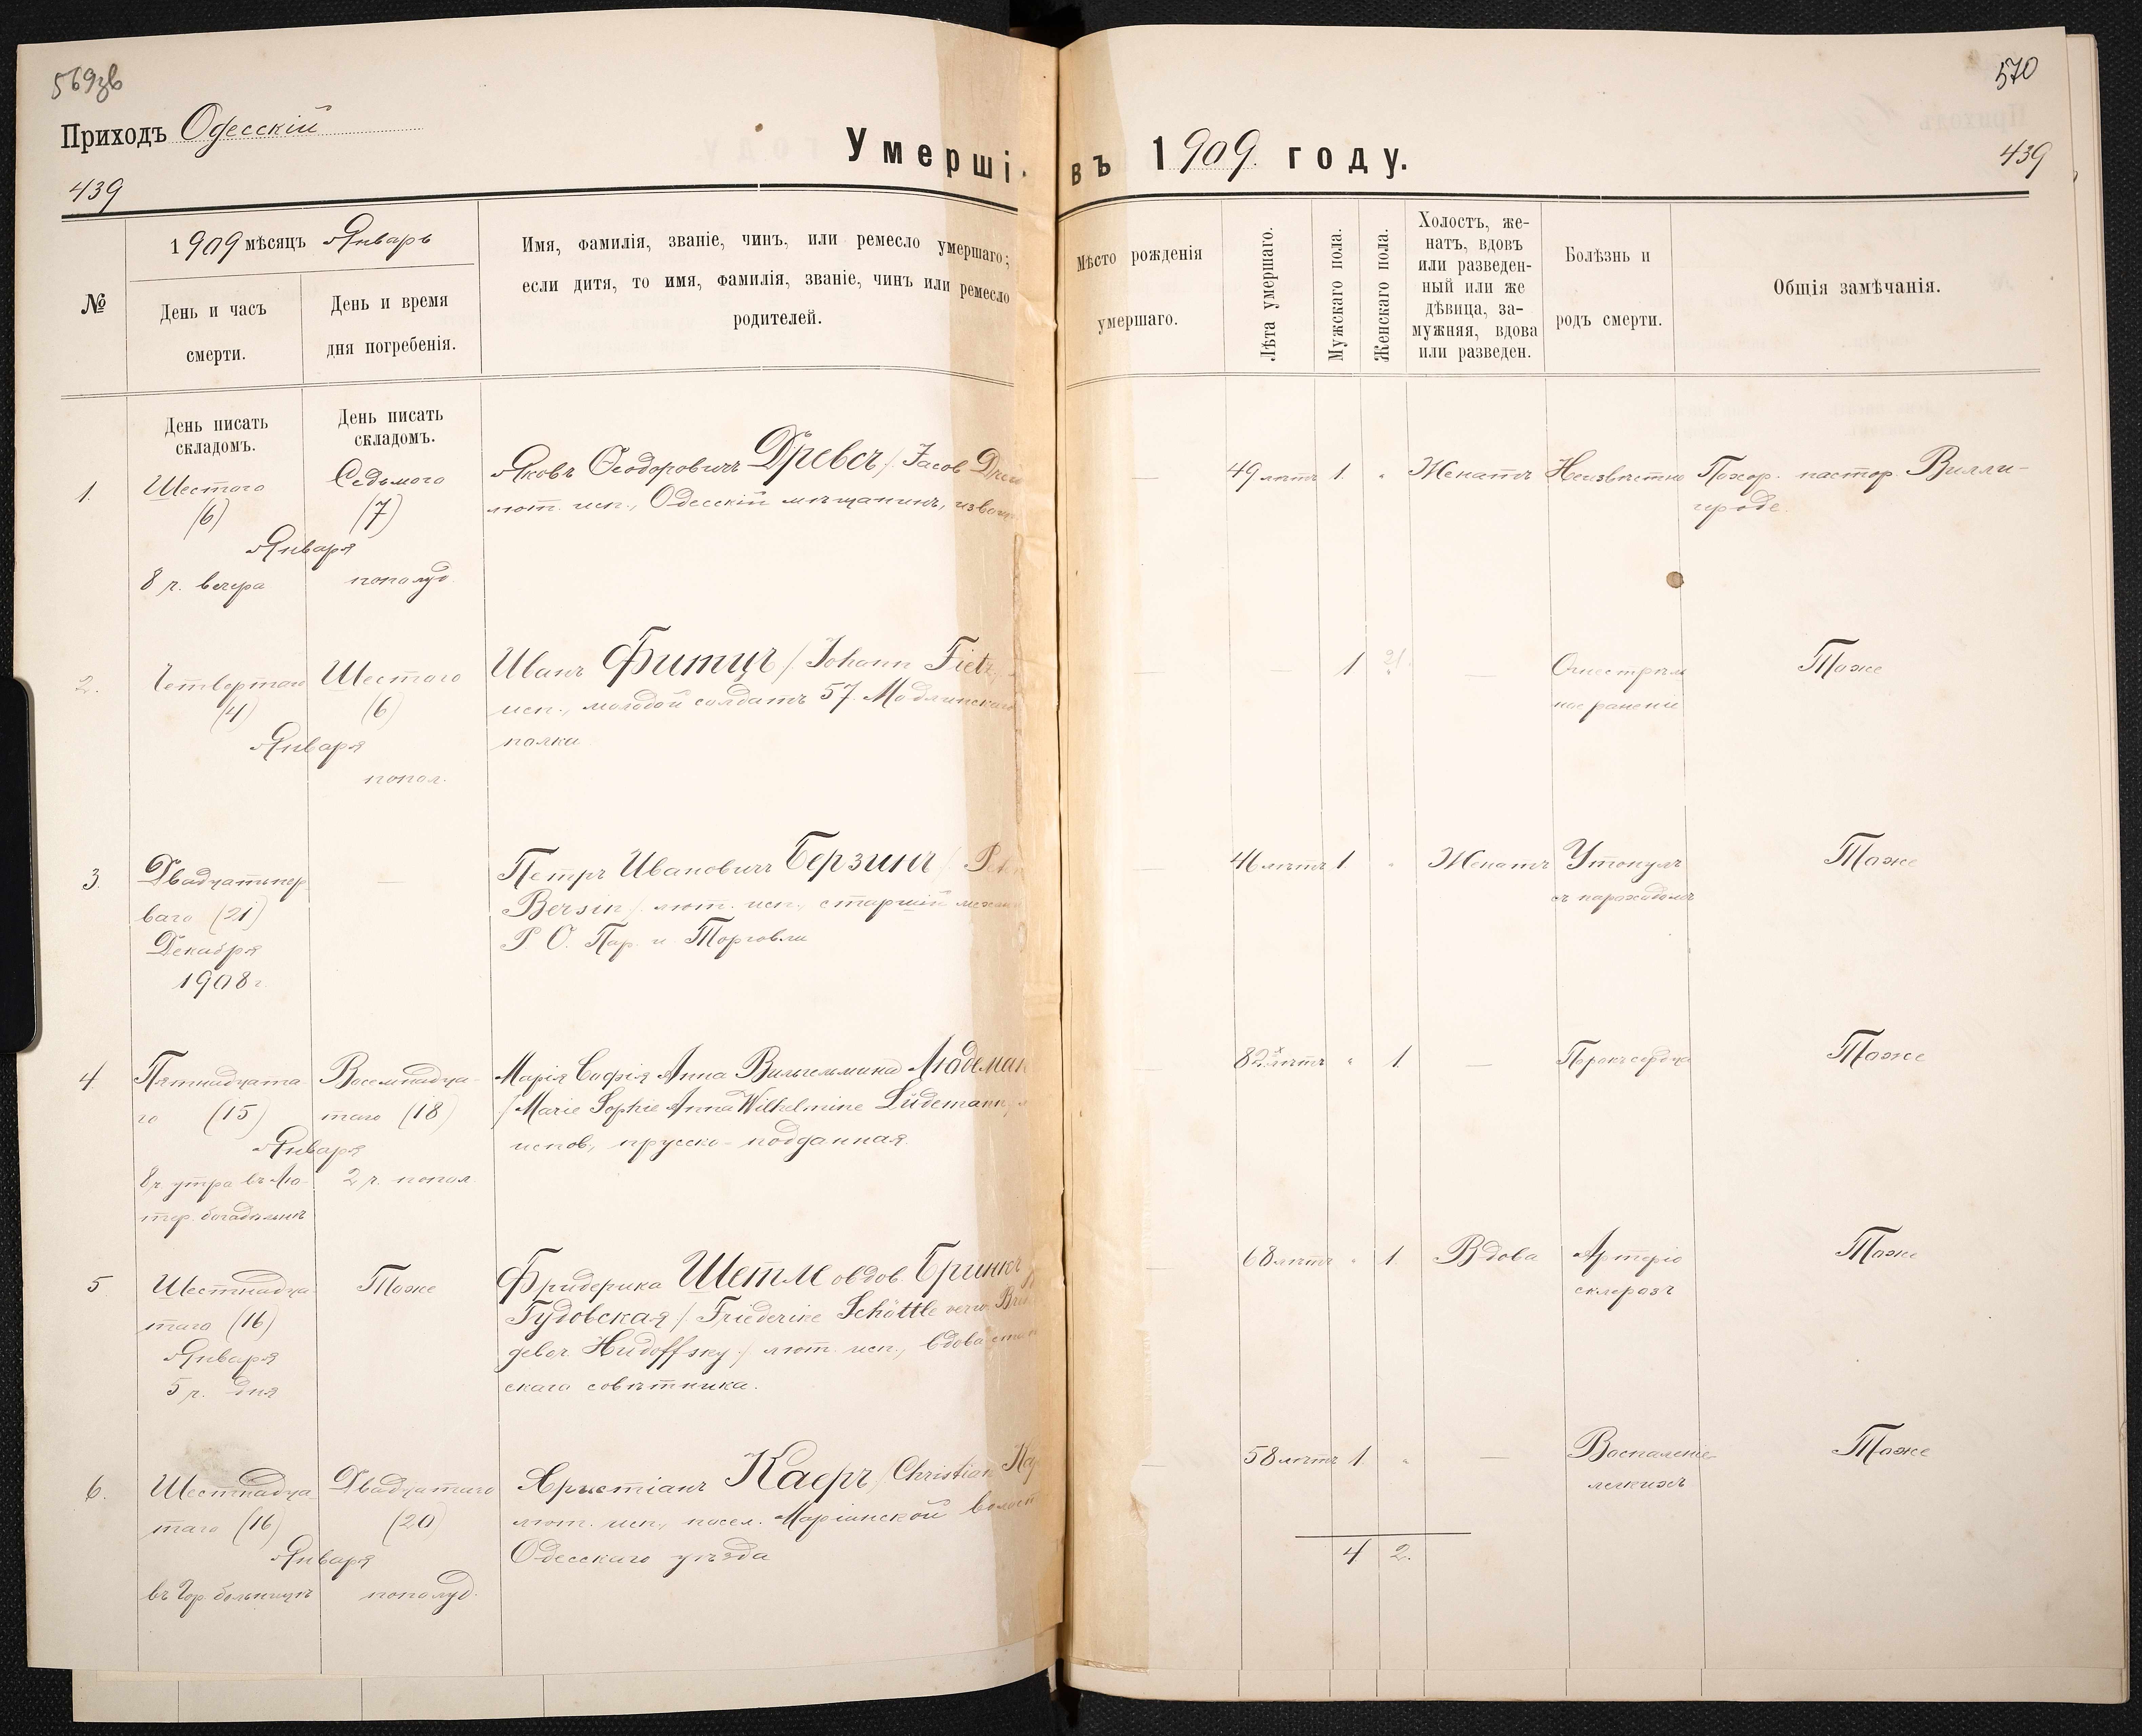 569зв
570
Приходъ Одесскій
Умерші
въ 1909 году.
439
439
№
1909 мѣсяцъ Январь
День и часъ
смерти.
День и время
дня погребенія.
Имя, фамилія, званіе, чинъ, или ремесло умершаго;
если дитя, то имя, фамилія, званіе, чинъ или ремесло
родителей.
Мѣсто рожденія
умершаго.
Лѣта умершаго.
Мужскаго пола.
Женскаго пола.
Холостъ, же-
натъ, вдовъ
или разведен-
ный или же
дѣвица, за-
мужняя, вдова
или разведен.
Болѣзнь и
родъ смерти.
Общія замѣчанія.
День писать
складомъ.
День писать
складомъ.
1.
Шестого
(6)
Января
8 ч. вечера
Седьмого
(7)
пополуд.
Яковъ Ѳеодоровичъ Древсъ /. Jacob
лют. исп., Одесскій мѣщанинъ,
—
49 лѣтъ
1.
"
Женатъ
Неизвѣстно
Похор. пастор. Вилли-
героде.
2.
Четвертаго
(4)
Января
Шестого
(6)
попол.
Иванъ Фитцъ /. Johann Fietz
исп., молодой солдатъ 57. Модлинскаго
полка
—
1
—
Огнестрѣль
ное раненіе
Тоже
3.
Двадцатьпер
ваго (21)
Декабря
1908 г.
—
Петръ Ивановичъ Берзинъ /.
Bersin /. лют. исп., старшій
Р. О. Пар. и Торговли
—
46 лѣтъ
1
"
Женатъ
Утонулъ
съ пароходомъ
Тоже
4
Пятнадцата-
го (15)
Января
8 ч. утра въ Лю-
тер. богадѣльнѣ
Восемнадца-
таго (18)
2 ч. попол.
Марія Софія Анна Вильгельмина Людеман
/. Marie Sophie Anna Wilhelmine Lüdemann,
испов., прусско-подданная.
—
82 лѣтъ
"
1
—
Тоже
5
Шестнадца-
таго (16)
Января
5 ч. дня
Тоже
Фридерика Шетле овдов. Бринкъ
Гудовская /. Friederike Schöttle verw.
gebor. Hudoffsky /. лют. исп., вдова
скаго совѣтника.
—
68 лѣтъ
"
1
Вдова
Артеріо
склерозъ
Тоже
6.
Шестнадца-
таго (16)
Января
въ Гор. больницѣ
Двадцатаго
(20)
пополуд.
Христіанъ Каеръ /. Christian
лют. исп., посел. Маріинской
Одесскаго уѣзда
—
58 лѣтъ
1
"
—
Воспаленіе
легкихъ
Тоже
4
2.